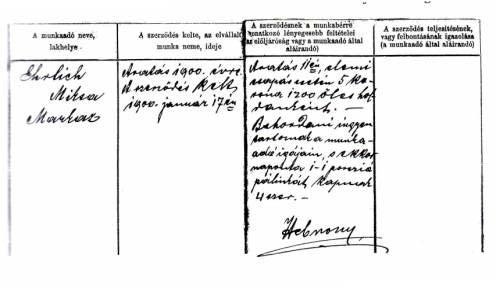 A munkaadó neve,
lakhelye.
A szerződés kelte, az elvállalt
munka neme, ideje
A szerződésnek a munkabérre
vonatkozó lényegesebb feltételei
(az előljáróság vagy a munkaadó által
aláirandó)
A szerződés teljesítésének,
vagy felbontásának igazolása
(a munkaadó által aláirandó)
Ehrlich
Miksa
Markaz
Aratás 1900. évre.
A szerződés kelt
1900. január 17én
Aratás 11én, elemi
csapás esetén 5 ko-
rona 1200 öles hol-
danként. —
Behordani ingyen
tartoznak a munka-
adó igájain, s ekkor
naponta 1-1 porció
pálinkát kapnak
4szer. —